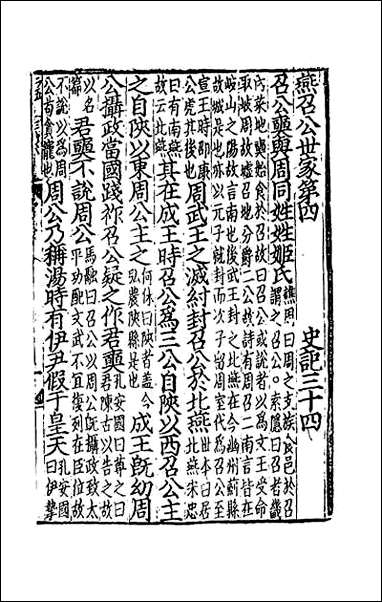 燕召公世家第四 史記三十四
召公奭與周同姓姓姬氏譙周曰周之支族食邑於召謂之召公。索隱曰召者畿
內菜地奭始食於召故曰召公或說者以爲文王受命取岐周故墟召地分爵二公故詩有周召二南言皆在
岐山之陽故言南也後武王封之北燕在今幽州薊縣故城是也亦以元子就封而次子留周室代爲召公至
宣王時即康公虎其後也周武王之滅紂封召公於北燕世本曰居北燕宋忠
曰有南燕故云北燕其在成王時召公爲三公自陝以西召公主
之自陝以東周公主之何休曰陝者蓋今弘農陝縣是也成王旣幼周
公攝政當國踐祚召公疑之作君奭孔安國曰尊之曰君陳古以告之故
以名篇君奭不說周公馬融曰召公以周公旣攝政致太平功配文武不宜復列在臣位故
不說以爲周公苟貪寵也周公乃稱湯時有伊尹假于皇天孔安國曰伊摯